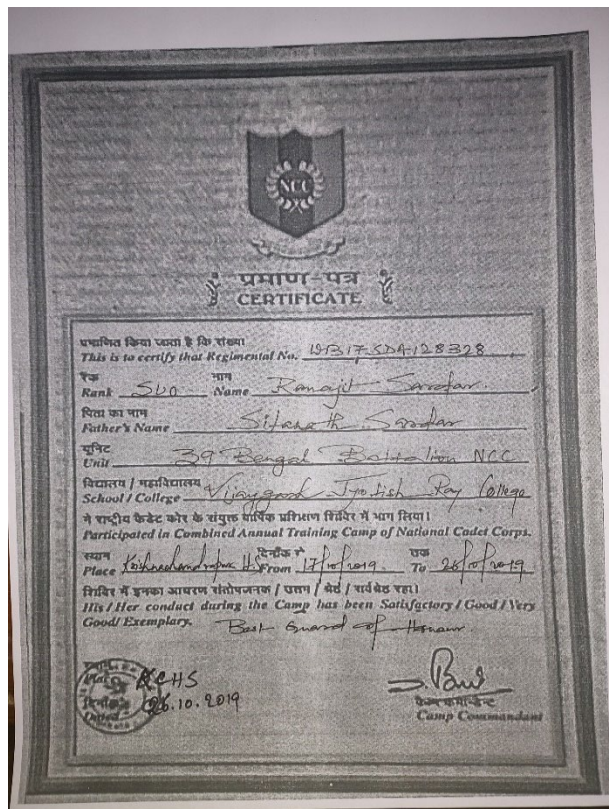 NCC
प्रमाण-पत्र
CERTIFICATE
प्रमाणित किया जाता है कि संख्या
This is to certify that Regimental No. WB17SDA128328
रैंक नाम
Rank SUO Name Ranajit Sardar.
पिता का नाम
Father's Name Sitanath Sardar
यूनिट
Unit 39 Bengal Battalion NCC
विद्यालय / महाविद्यालय
School / College Vijaygarh Jyotish Ray College
ने राष्ट्रीय कैडेट कोर के संयुक्त वार्षिक प्रशिक्षण शिविर में भाग लिया।
Participated in Combined Annual Training Camp of National Cadet Corps.
स्थान दिनाँक से तक
Place Krishnachandrapur H.S From 17/10/2019 To 26/10/2019
शिविर में इनका आचरण संतोषजनक / उत्तम / श्रेष्ठ / सर्वश्रेष्ठ रहा।
His / Her conduct during the Camp has been Satisfactory / Good / Very
Good / Exemplary. Best Guard of Honour.
Place KCHS
दिनाँक 26.10.2019
Dated
कैम्प कमान्डेन्ट
Camp Commandant